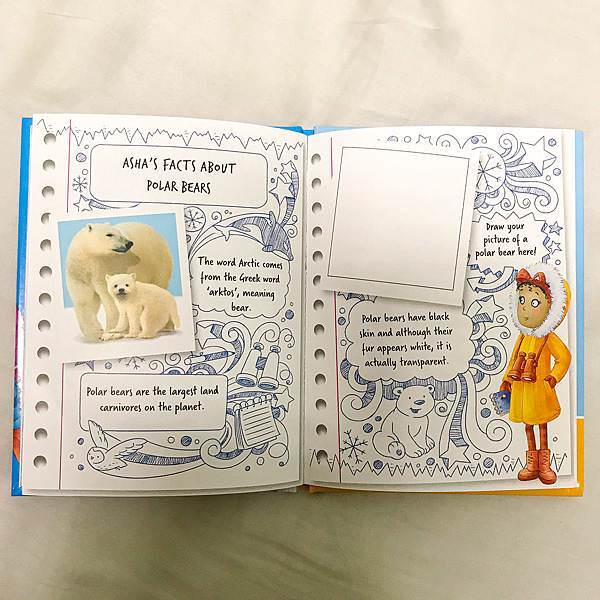 ASHA'S FACTS ABOUT
POLAR BEARS
The word Arctic comes
from the Greek word
'arktos', meaning
bear.
Polar bears are the largest land
carnivores on the planet.
Draw your
picture of a
polar bear here!
Polar bears have black
skin and although their
fur appears white, it is
actually transparent.